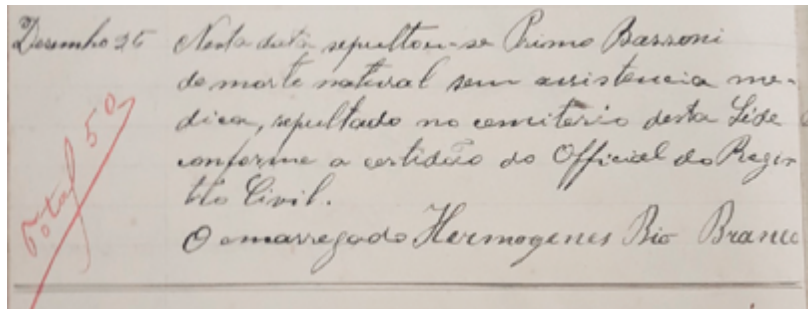 Desembro 25 Nesta data sepultou-se Primo Bazzoni
de morte natural sem assistencia me-
dica, sepultado no cemiterio desta Séde
conforme a certidão do Official do Regis-
tto Civil.
O emarregado Hermogenes Rio Branco
Total 50